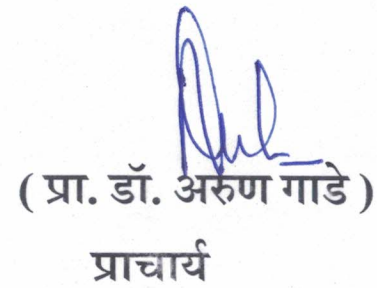 ( प्रा. डॉ. अरुण गाडे )
प्राचार्य